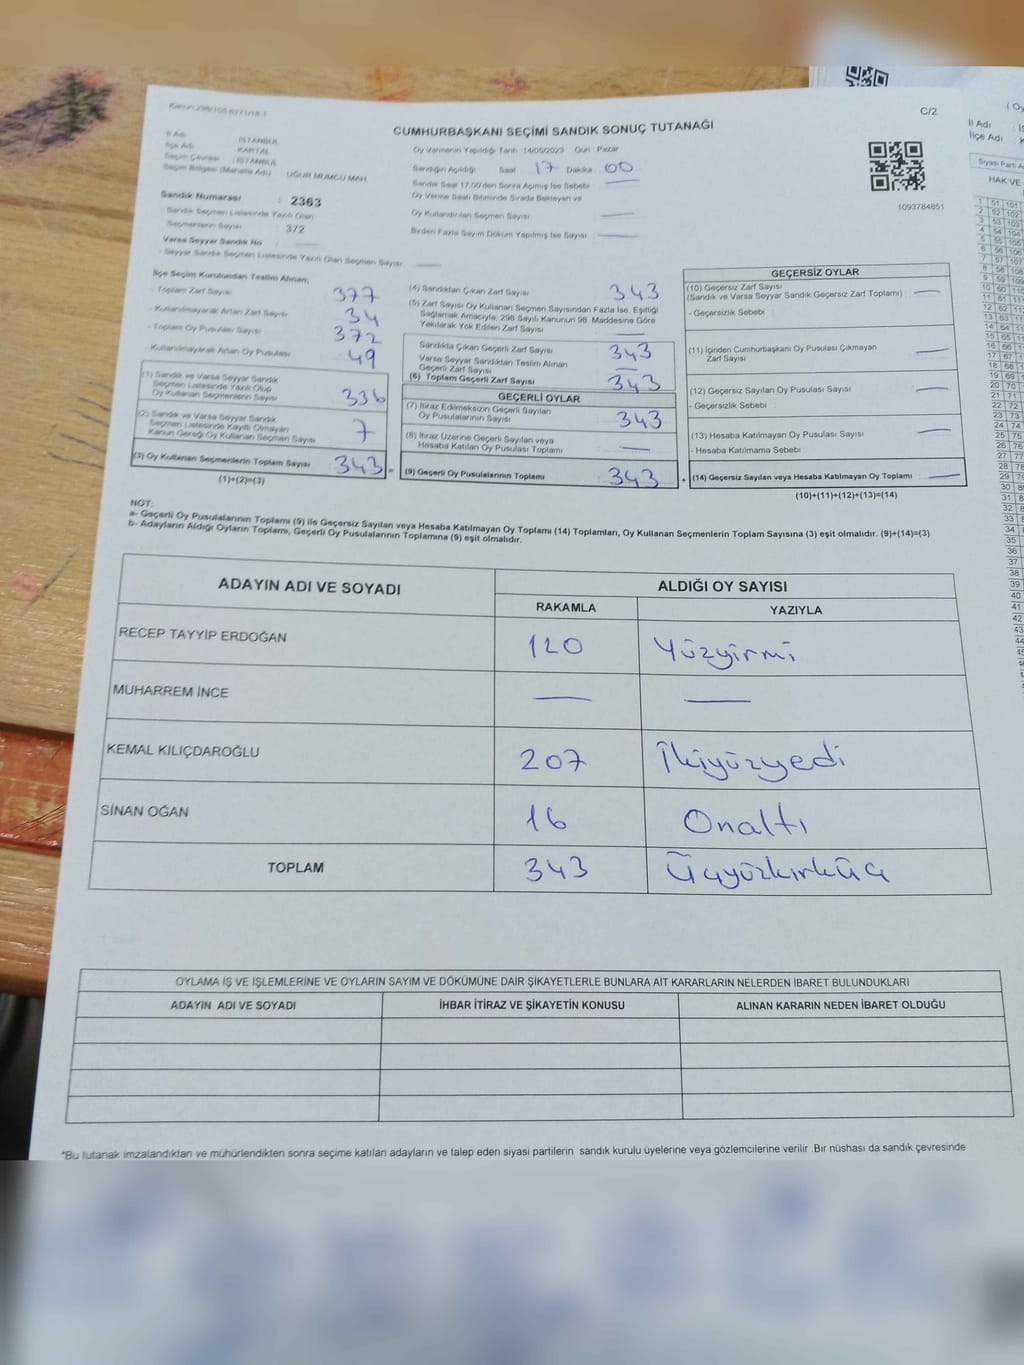 C/2
CUMHURBAŞKANI SEÇİMİ SANDIK SONUÇ TUTANAĞI
İl Adı : İSTANBUL
İlçe Adı : KARTAL
Seçim Çevresi : İSTANBUL
Seçim Bölgesi (Mahalle Adı) : UĞUR MUMCU MAH.
Sandık Numarası : 2363
Sandık Seçmen Listesinde Yazılı Olan
Seçmenlerin Sayısı : 372
Varsa Seyyar Sandık No
Seyyar Sandık Seçmen Listesinde Yazılı Olan Seçmen Sayısı:
Oy Vermenin Yapıldığı Tarih : 14/05/2023 Gün : Pazar
Sandığın Açıldığı Saat 17 Dakika 00
Sandık Saat 17:00'den Sonra Açılmış İse Sebebi
Oy Verme Saati Bitiminde Sırada Bekleyen ve
Oy Kullandırılan Seçmen Sayısı —
Birden Fazla Sayım Döküm Yapılmış İse Sayısı —
1093784651
İlçe Seçim Kurulundan Teslim Alınan;
- Toplam Zarf Sayısı 377
- Kullanılmayarak Artan Zarf Sayısı 34
- Toplam Oy Pusulası Sayısı 372
- Kullanılmayarak Artan Oy Pusulası 49
(1) Sandık ve Varsa Seyyar Sandık
Seçmen Listesinde Yazılı Olup
Oy Kullanan Seçmenlerin Sayısı 336
(2) Sandık ve Varsa Seyyar Sandık
Seçmen Listesinde Kayıtlı Olmayan
Kanun Gereği Oy Kullanan Seçmen Sayısı 7
(3) Oy Kullanan Seçmenlerin Toplam Sayısı 343 =
(1)+(2)=(3)
(4) Sandıktan Çıkan Zarf Sayısı 343
(5) Zarf Sayısı Oy Kullanan Seçmen Sayısından Fazla İse, Eşitliği
Sağlamak Amacıyla, 298 Sayılı Kanunun 98. Maddesine Göre
Yakılarak Yok Edilen Zarf Sayısı
Sandıkta Çıkan Geçerli Zarf Sayısı 343
Varsa Seyyar Sandıktan Teslim Alınan
Geçerli Zarf Sayısı —
(6) Toplam Geçerli Zarf Sayısı 343
GEÇERLİ OYLAR
(7) İtiraz Edilmeksizin Geçerli Sayılan
Oy Pusulalarının Sayısı 343
(8) İtiraz Üzerine Geçerli Sayılan veya
Hesaba Katılan Oy Pusulası Toplamı —
(9) Geçerli Oy Pusulalarının Toplamı 343 +
GEÇERSİZ OYLAR
(10) Geçersiz Zarf Sayısı
(Sandık ve Varsa Seyyar Sandık Geçersiz Zarf Toplamı) —
- Geçersizlik Sebebi
(11) İçinden Cumhurbaşkanı Oy Pusulası Çıkmayan
Zarf Sayısı —
(12) Geçersiz Sayılan Oy Pusulası Sayısı —
- Geçersizlik Sebebi
(13) Hesaba Katılmayan Oy Pusulası Sayısı —
- Hesaba Katılmama Sebebi
(14) Geçersiz Sayılan veya Hesaba Katılmayan Oy Toplamı —
(10)+(11)+(12)+(13)=(14)
NOT:
a- Geçerli Oy Pusulalarının Toplamı (9) ile Geçersiz Sayılan veya Hesaba Katılmayan Oy Toplamı (14) Toplamları, Oy Kullanan Seçmenlerin Toplam Sayısına (3) eşit olmalıdır. (9)+(14)=(3)
b- Adayların Aldığı Oyların Toplamı, Geçerli Oy Pusulalarının Toplamına (9) eşit olmalıdır.
ADAYIN ADI VE SOYADI ALDIĞI OY SAYISI
RAKAMLA YAZIYLA
RECEP TAYYİP ERDOĞAN 120 Yüzyirmi
MUHARREM İNCE — —
KEMAL KILIÇDAROĞLU 207 İkiyüzyedi
SİNAN OĞAN 16 Onaltı
TOPLAM 343 Üçyüzkırküç
OYLAMA İŞ VE İŞLEMLERİNE VE OYLARIN SAYIM VE DÖKÜMÜNE DAİR ŞİKAYETLERLE BUNLARA AİT KARARLARIN NELERDEN İBARET BULUNDUKLARI
ADAYIN ADI VE SOYADI İHBAR İTİRAZ VE ŞİKAYETİN KONUSU ALINAN KARARIN NEDEN İBARET OLDUĞU
*Bu tutanak imzalandıktan ve mühürlendikten sonra seçime katılan adayların ve talep eden siyasi partilerin sandık kurulu üyelerine veya gözlemcilerine verilir. Bir nüshası da sandık çevresinde
İl Adı
İlçe Adı
Siyasi Parti
HAK VE